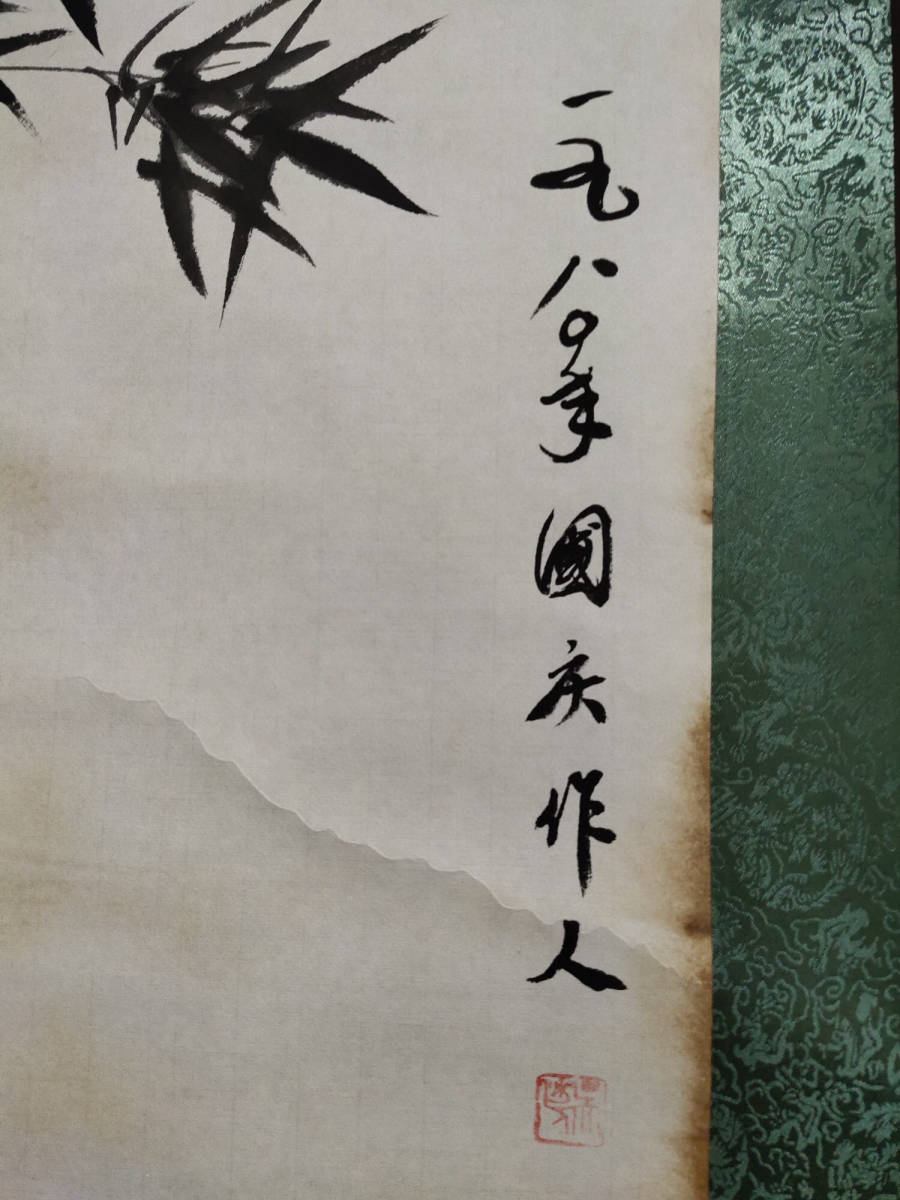 一九八〇年國庆作人